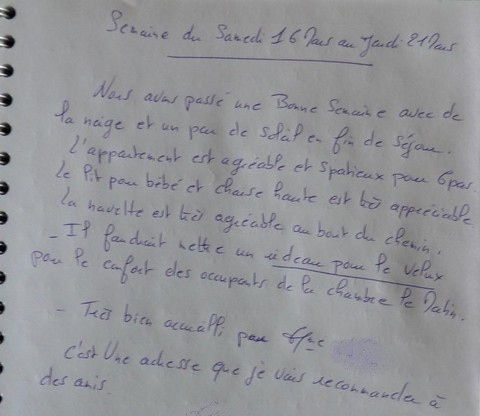 Semaine du Samedi 16 Mars au Jeudi 21 Mars
Nous avons passé une Bonne Semaine avec de
la neige et un peu de soleil en fin de séjour.
L'appartement est agréable et spatieux pour 6 pers.
le lit pour bébé et chaise haute est très appréciable.
la navette est très agréable au bout du chemin.
- Il faudrait mettre un rideau pour le velux
pour le confort des occupants de la chambre le Matin.
- Très bien accueilli par Mme
c'est Une adresse que je vais recommander à
des amis.